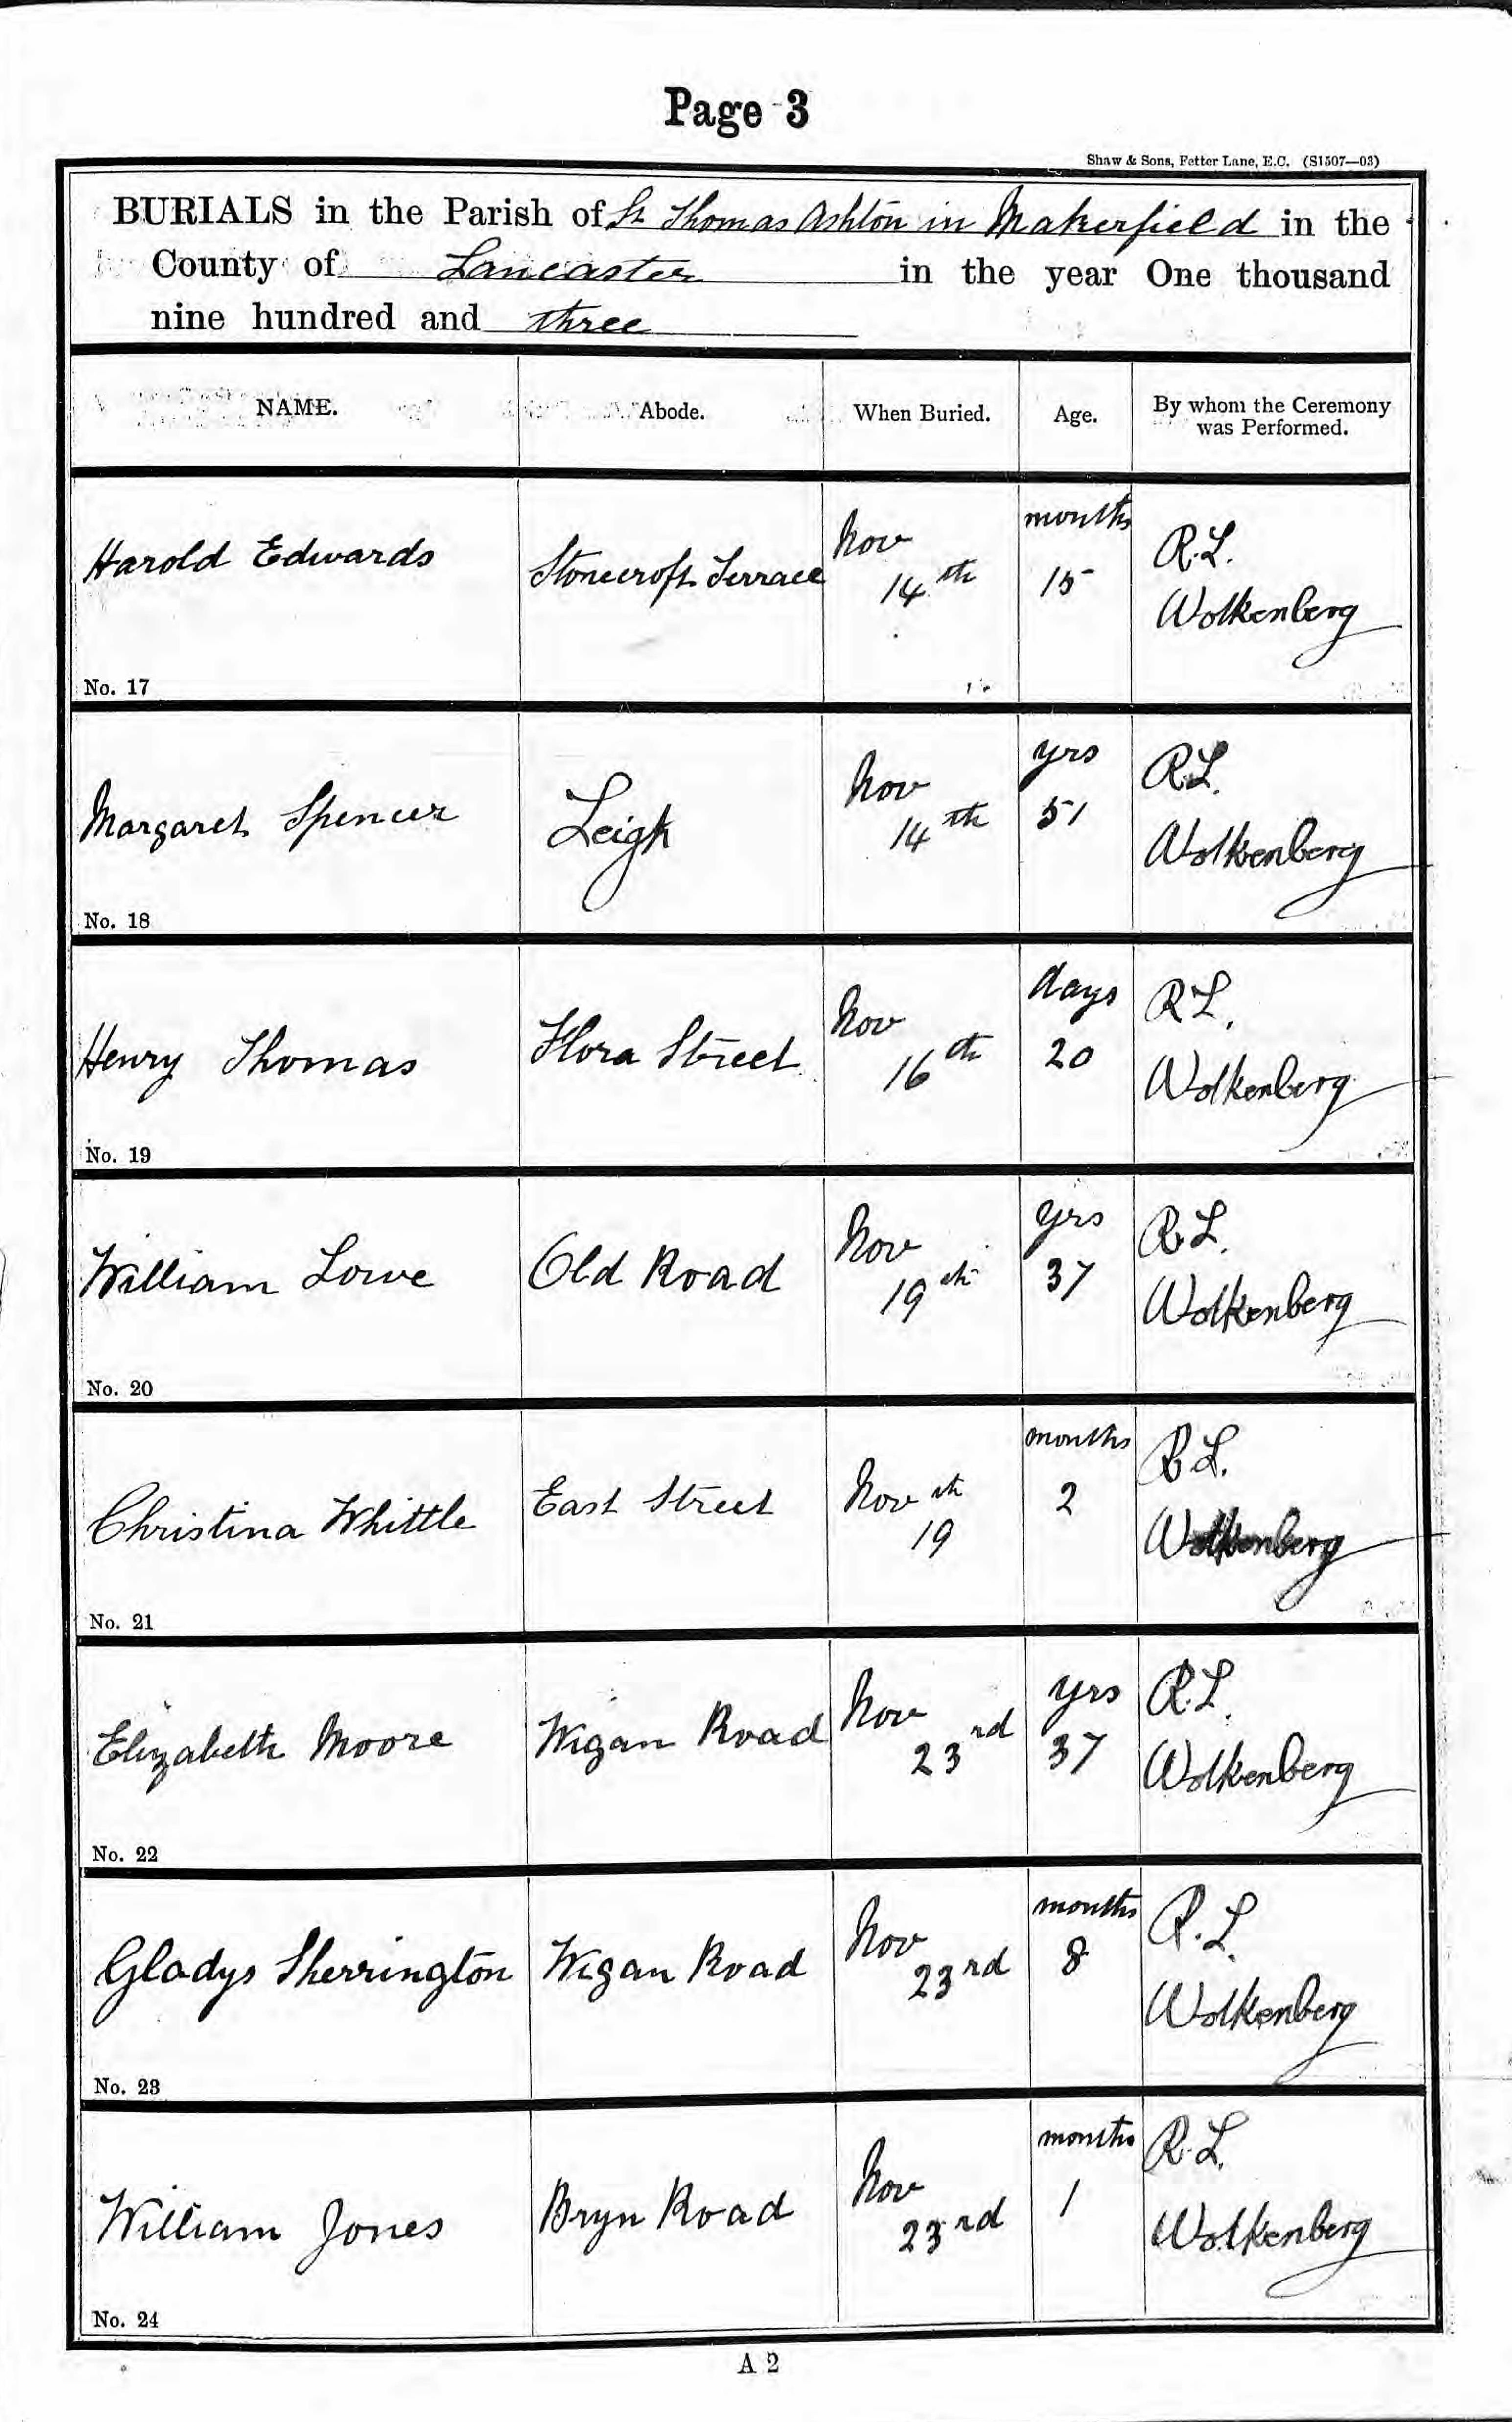 Page 3
Shaw & Sons, Fetter Lane, E.C. (S1507—03)
BURIALS in the Parish of St Thomas Ashton in Makerfield in the
County of Lancaster in the year One thousand
nine hundred and three
NAME. Abode. When Buried. Age. By whom the Ceremony
was Performed.
Harold Edwards Stonecroft Terrace Nov 14th months 15 R.L.
Wolkenberg
No. 17
Margaret Spencer Leigh Nov 14th yrs 51 R.L.
Wolkenberg
No. 18
Henry Thomas Flora Street Nov 16th days 20 R L.
Wolkenberg
No. 19
William Lowe Old Road Nov 19th yrs 37 R L.
Wolkenberg
No. 20
Christina Whittle East Street Nov th 19 months 2 R L.
Wolkenberg
No. 21
Elizabeth Moore Wigan Road Nov 23rd yrs 37 R.L.
Wolkenberg
No. 22
Gladys Sherrington Wigan Road Nov 23rd months 8 R.L.
Wolkenberg
No. 23
William Jones Bryn Road Nov 23rd months 1 R.L.
Wolkenberg
No. 24
A 2